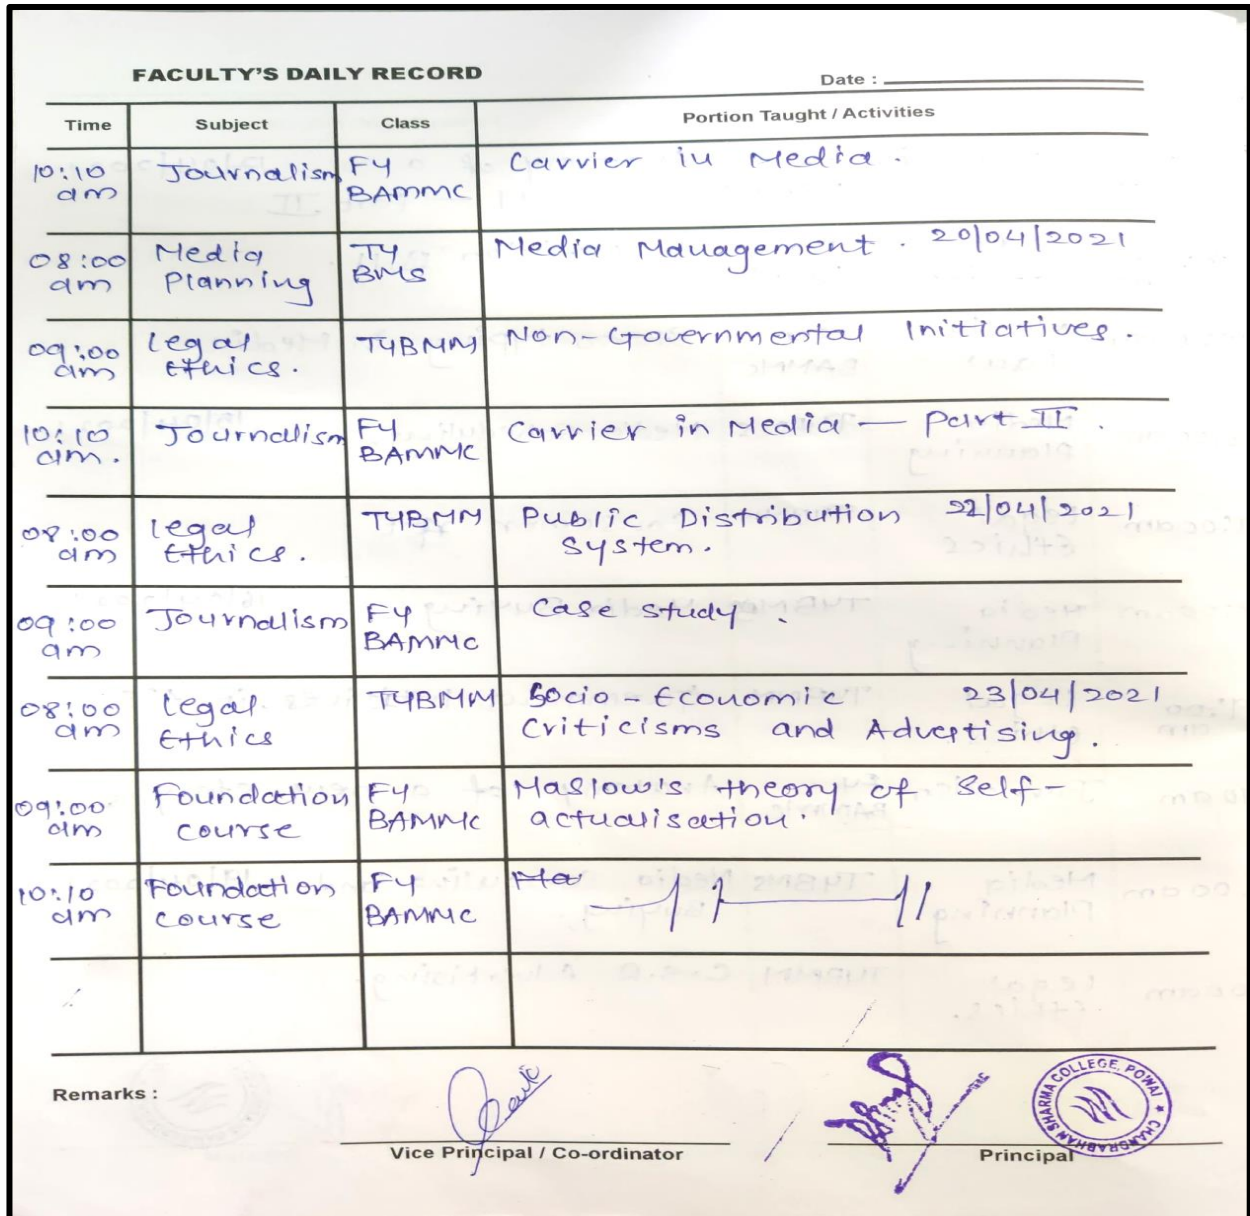 FACULTY'S DAILY RECORD
Date :
Time Subject Class Portion Taught / Activities
10:10 am Journalism FY BAMMC Carrier in Media .
08:00 am Media Planning TY BMS Media Management . 20/04/2021
09:00 am Legal Ethics . TYBMM Non-Governmental Initiatives .
10:10 am . Journalism FY BAMMC Carrier in Media - Part II .
08:00 am Legal Ethics . TYBMM Public Distribution System . 22/04/2021
09:00 am Journalism FY BAMMC Case study .
08:00 am Legal Ethics TYBMM Socio-Economic Criticisms and Advertising . 23/04/2021
09:00 am Foundation course FY BAMMC Maslow's theory of Self-actualisation .
10:10 am Foundation course FY BAMMC Ma
Remarks :
Vice Principal / Co-ordinator
Principal
CHANDRABHAN SHARMA COLLEGE, POWAI